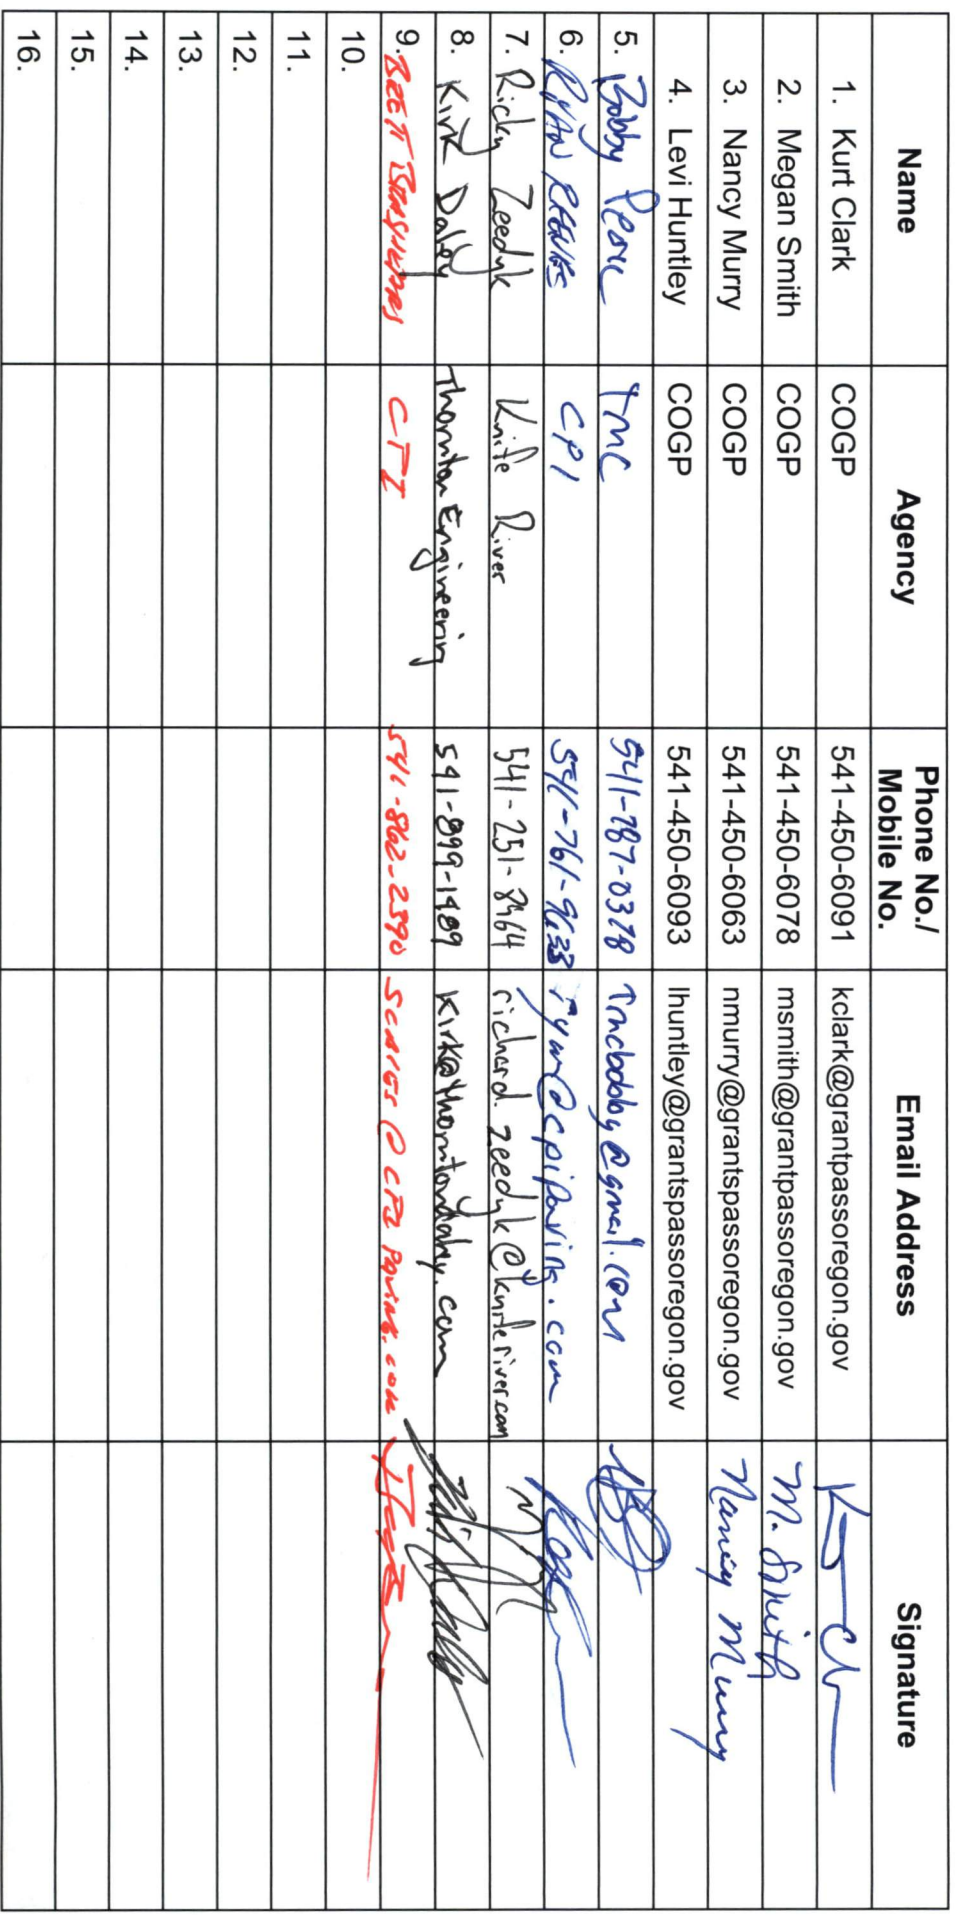 Name Agency Phone No./ Mobile No. Email Address Signature
1. Kurt Clark COGP 541-450-6091 kclark@grantpassoregon.gov
2. Megan Smith COGP 541-450-6078 msmith@grantpassoregon.gov M. Smith
3. Nancy Murry COGP 541-450-6063 nmurry@grantspassoregon.gov Nancy Murry
4. Levi Huntley COGP 541-450-6093 lhuntley@grantspassoregon.gov
5. Bobby TMC 541-787-0378 Tmcbobby@gmail.com
6. RYAN REEVES CPI 541-761-9633 ryan@cpipaving.com
7. Ricky Zeedyk Knife River 541-251-8464 richard.zeedyk@kniferiver.com
8. Kirk Daley Thornton Engineering 541-899-1489 Kirk@thorntondaley.com
9. BRETT CPI 541-862-2590 @CPI PAVING.COM
10.
11.
12.
13.
14.
15.
16.